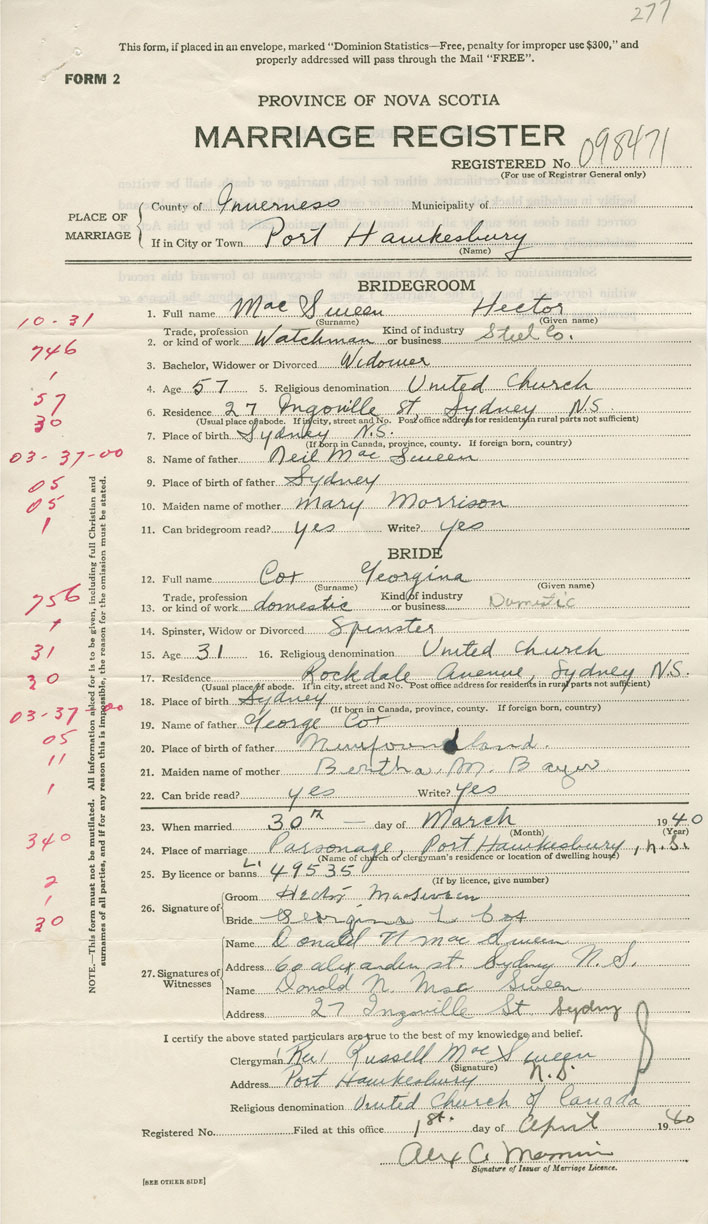 277
This form, if placed in an envelope, marked "Dominion Statistics—Free, penalty for improper use $300," and
properly addressed will pass through the Mail "FREE".
FORM 2
PROVINCE OF NOVA SCOTIA
MARRIAGE REGISTER
REGISTERED No. 098471
(For use of Registrar General only)
PLACE OF MARRIAGE
County of Inverness Municipality of
If in City or Town Port Hawkesbury
(Name)
BRIDEGROOM
10-31 1. Full name Mac Sween Hector
(Surname) (Given name)
746 2. Trade, profession or kind of work Watchman Kind of industry or business Steel Co.
1 3. Bachelor, Widower or Divorced Widower
57 4. Age 57 5. Religious denomination United Church
30 6. Residence 27 Ingoville St, Sydney N.S.
(Usual place of abode. If in city, street and No. Post office address for residents in rural parts not sufficient)
7. Place of birth Sydney N.S.
(If born in Canada, province, county. If foreign born, country)
03-37-00 8. Name of father Neil Mac Sween
05 9. Place of birth of father Sydney
05 10. Maiden name of mother Mary Morrison
1 11. Can bridegroom read? yes Write? yes
BRIDE
12. Full name Cox Georgina
(Surname) (Given name)
756 13. Trade, profession or kind of work domestic Kind of industry or business Domestic
1 14. Spinster, Widow or Divorced Spinster
31 15. Age 31 16. Religious denomination United Church
30 17. Residence Rockdale Avenue, Sydney N.S.
(Usual place of abode. If in city, street and No. Post office address for residents in rural parts not sufficient)
03-37-00 18. Place of birth Sydney
(If born in Canada, province, county. If foreign born, country)
19. Name of father George Cox
05 20. Place of birth of father Newfoundland.
11 21. Maiden name of mother Bertha M. Bayer
1 22. Can bride read? yes Write? yes
23. When married 30th — day of March 1940
(Month) (Year)
340 24. Place of marriage Parsonage, Port Hawkesbury, N.S.
(Name of church or clergyman's residence or location of dwelling house)
25. By licence or banns L. 49535
(If by licence, give number)
2
1 26. Signature of Groom Hector MacSween
30 Bride Georgina L Cox
27. Signatures of Witnesses
Name Donald N Mac Sween
Address 60 alexander st Sydney N.S.
Name Donald N. Mac Sween
Address 27 Ingoville St Sydney
NOTE.—This form must not be mutilated. All information asked for is to be given, including full Christian and
surnames of all parties, and if for any reason this is impossible, the reason for the omission must be stated.
I certify the above stated particulars are true to the best of my knowledge and belief.
Clergyman Rev Russell Mac Sween
(Signature)
Address Port Hawkesbury N.S.
Religious denomination United Church of Canada
Registered No. Filed at this office 1st. day of April 1940
Alex C.
Signature of Issuer of Marriage Licence.
[SEE OTHER SIDE]